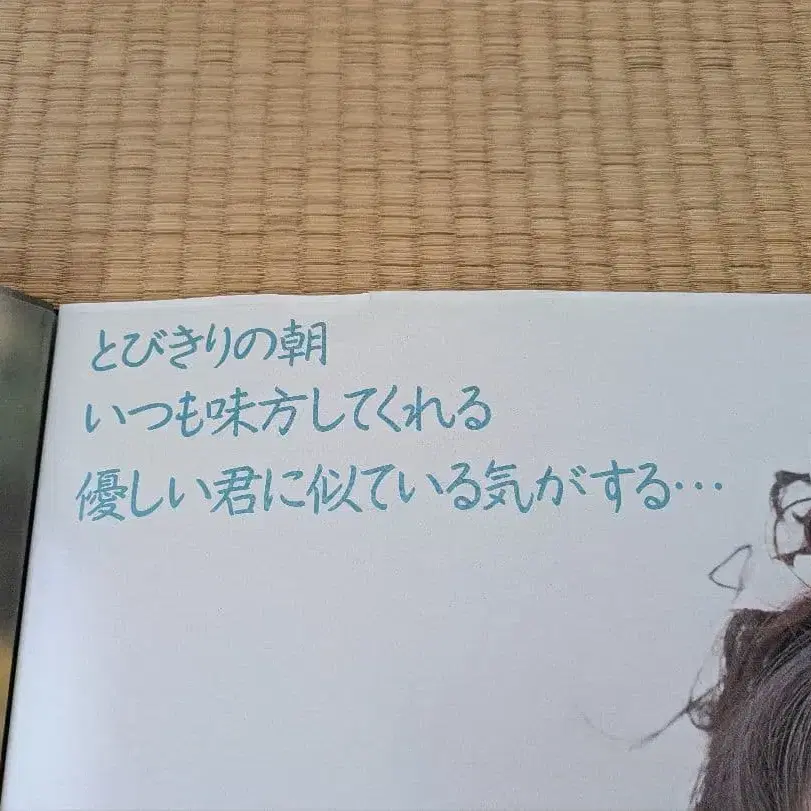 とびきりの朝
いつも味方してくれる
優しい君に似ている気がする…